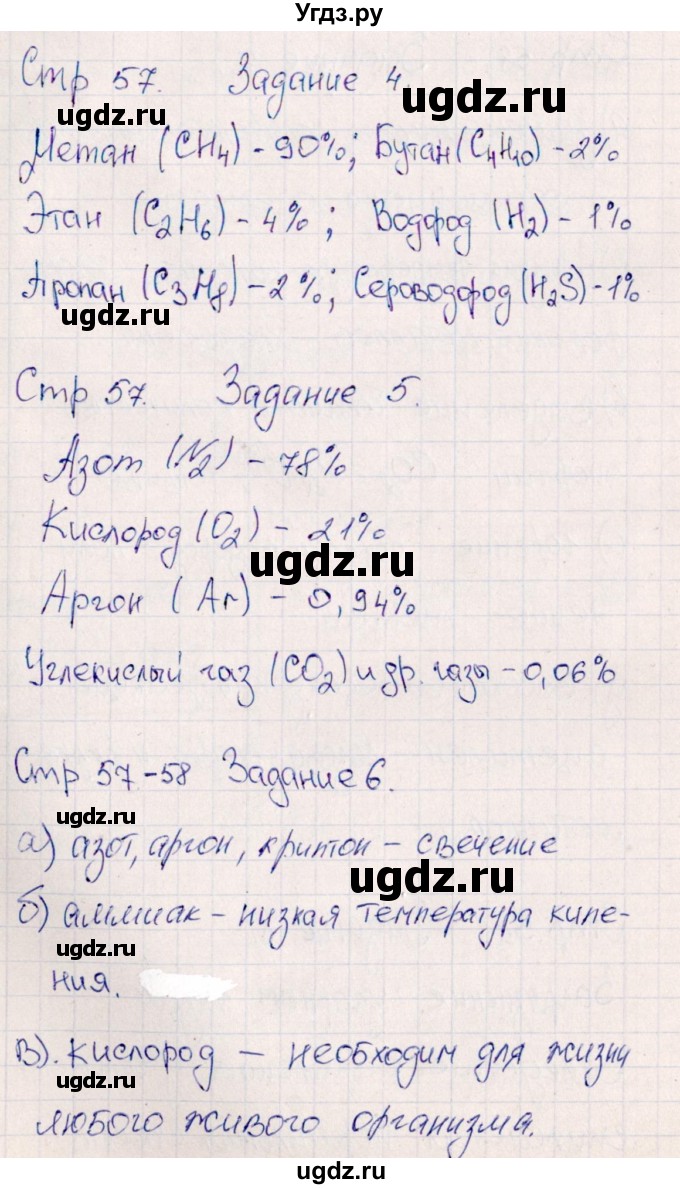 Угдз.ру
Стр 57. Задание 4.
ugdz.ru ugdz.ru
Метан (CH4) - 90%; Бутан (C4H10) - 2%
Этан (C2H6) - 4%; Водород (H2) - 1%
Пропан (C3H8) - 2%; Сероводород (H2S) - 1%
ugdz.ru
Стр 57. Задание 5.
ugdz.ru
Азот (N2) - 78%
Кислород (O2) - 21%
ugdz.ru ugdz.ru
Аргон (Ar) - 0,94%
Углекислый газ (CO2) и др. газы - 0,06%
ugdz.ru
Стр 57-58 Задание 6.
ugdz.ru
а) азот, аргон, криптон - свечение
ugdz.ru
б) аммиак - низкая температура кипе-
ugdz.ru
ния.
в). кислород - необходим для жизни
ugdz.ru
любого живого организма.
ugdz.ru